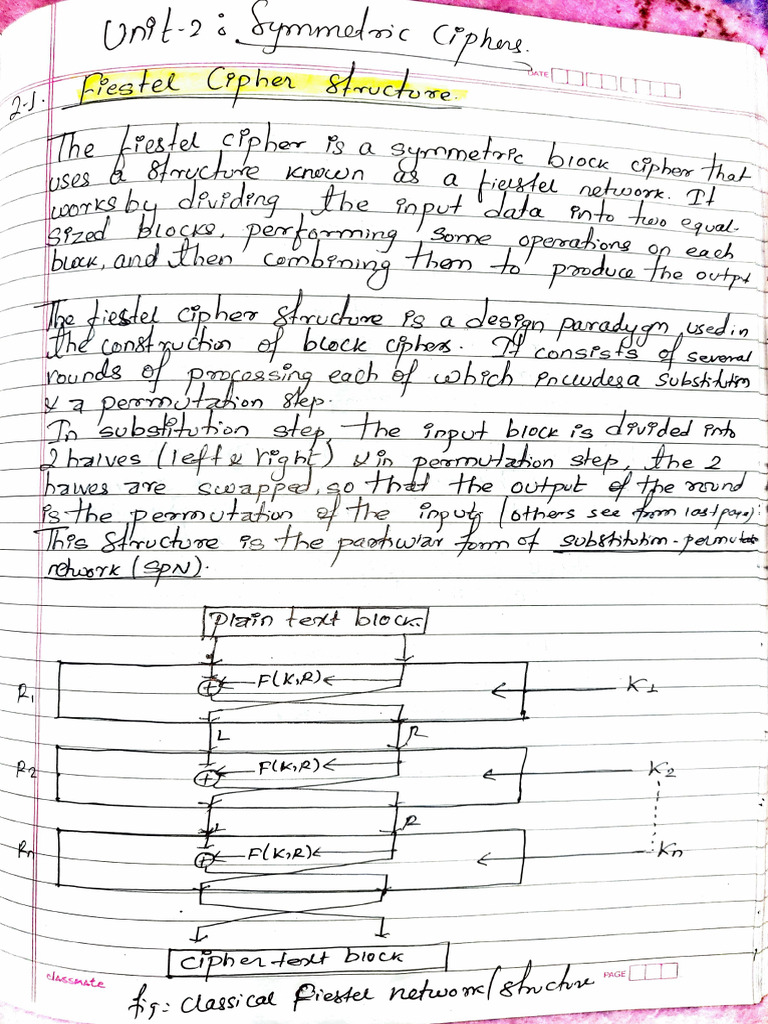 Unit-2: Symmetric Ciphers.
DATE
2.1. Fiestel Cipher Structure.
The fiestel cipher is a symmetric block cipher that
uses a structure known as a fiestel network. It
works by dividing the input data into two equal-
sized blocks, performing some operations on each
block, and then combining them to produce the outpt
The fiestel cipher structure is a design paradygm used in
the construction of block ciphers. It consists of several
rounds of processing each of which includes a substitution
& a permutation step.
In substitution step, the input block is divided into
2 halves (left & right) & in permutation step, the 2
halves are swapped, so that the output of the round
is the permutation of the input, (others see from last page):
This structure is the particular form of substitution-permutat
network (SPN).
Plain text block
R1 F(K,R) K1
L R
R2 F(K,R) K2
L R
Rn F(K,R) Kn
Cipher text block
classmate PAGE
fig: classical fiestel network/structure